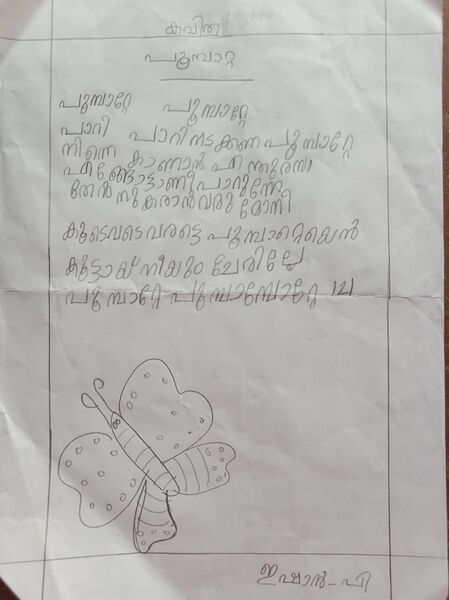 കവിത
പൂമ്പാറ്റ
പൂമ്പാറ്റേ പൂമ്പാറ്റേ
പാറി പാറിനടക്കണ പൂമ്പാറ്റേ
നിന്നെ കാണാൻ എന്തുരസം
എങ്ങോട്ടാണീപാറുന്നേ
തേൻനുകരാൻവരുമോനീ
കൂടെവടെവരട്ടെ പൂമ്പാറ്റെയെൻ
കൂട്ടായ് നീയും ചേരില്ലേ
പൂമ്പാറ്റേ പൂമ്പാമ്പോറ്റേ (2)
ഇഷാൻ-പി